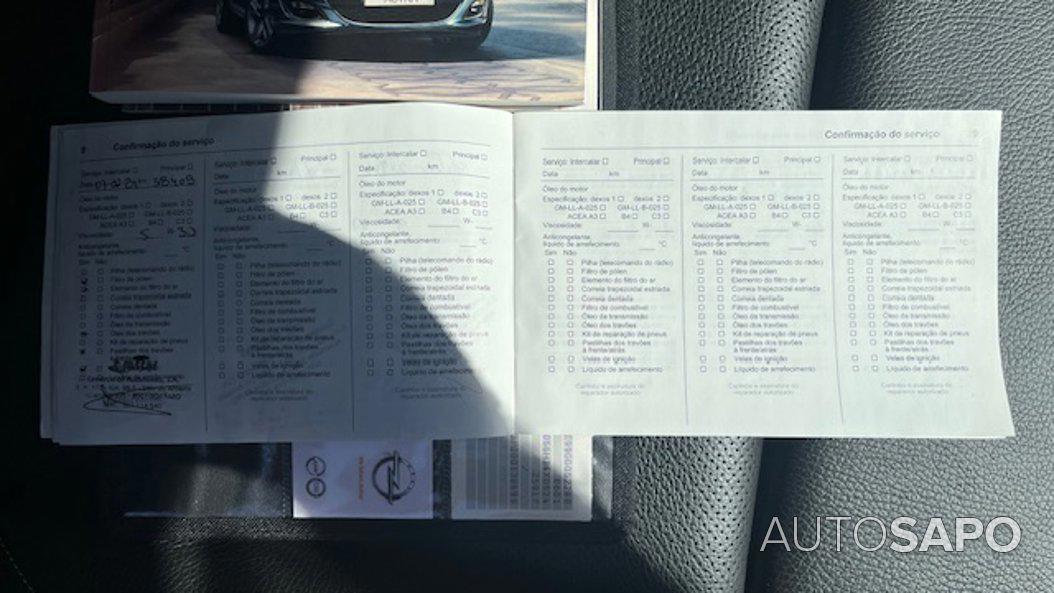 ASTRA
8 Confirmação do serviço
Serviço: Intercalar Principal
Data km 58409
Óleo do motor
Especificação: dexos 1 dexos 2
GM-LL-A-025 GM-LL-B-025
ACEA A3 B4 C3
Viscosidade: 5 W- 30
Anticongelante,
líquido de arrefecimento °C
Sim Não
Pilha (telecomando do rádio)
Filtro de pólen
Elemento do filtro do ar
Correia trapezoidal estriada
Correia dentada
Filtro de combustível
Óleo da transmissão
Óleo dos travões
Kit de reparação de pneus
Pastilhas dos travões
à frente/atrás
Serviço: Intercalar Principal
Data km
Óleo do motor
Especificação: dexos 1 dexos 2
GM-LL-A-025 GM-LL-B-025
ACEA A3 B4 C3
Viscosidade: W-
Anticongelante,
líquido de arrefecimento °C
Sim Não
Pilha (telecomando do rádio)
Filtro de pólen
Elemento do filtro do ar
Correia trapezoidal estriada
Correia dentada
Filtro de combustível
Óleo da transmissão
Óleo dos travões
Kit de reparação de pneus
Pastilhas dos travões
à frente/atrás
Velas de ignição
Líquido de arrefecimento
Carimbo e assinatura do
reparador autorizado
Serviço: Intercalar Principal
Data km
Óleo do motor
Especificação: dexos 1 dexos 2
GM-LL-A-025 GM-LL-B-025
ACEA A3 B4 C3
Viscosidade: W-
Anticongelante,
líquido de arrefecimento °C
Sim Não
Pilha (telecomando do rádio)
Filtro de pólen
Elemento do filtro do ar
Correia trapezoidal estriada
Correia dentada
Filtro de combustível
Óleo da transmissão
Óleo dos travões
Kit de reparação de pneus
Pastilhas dos travões
à frente/atrás
Velas de ignição
Líquido de arrefecimento
Carimbo e assinatura do
reparador autorizado
Confirmação do serviço 9
Serviço: Intercalar Principal
Data km
Óleo do motor
Especificação: dexos 1 dexos 2
GM-LL-A-025 GM-LL-B-025
ACEA A3 B4 C3
Viscosidade: W-
Anticongelante,
líquido de arrefecimento °C
Sim Não
Pilha (telecomando do rádio)
Filtro de pólen
Elemento do filtro do ar
Correia trapezoidal estriada
Correia dentada
Filtro de combustível
Óleo da transmissão
Óleo dos travões
Kit de reparação de pneus
Pastilhas dos travões
à frente/atrás
Velas de ignição
Líquido de arrefecimento
Carimbo e assinatura do
reparador autorizado
Serviço: Intercalar Principal
Data km
Óleo do motor
Especificação: dexos 1 dexos 2
GM-LL-A-025 GM-LL-B-025
ACEA A3 B4 C3
Viscosidade: W-
Anticongelante,
líquido de arrefecimento °C
Sim Não
Pilha (telecomando do rádio)
Filtro de pólen
Elemento do filtro do ar
Correia trapezoidal estriada
Correia dentada
Filtro de combustível
Óleo da transmissão
Óleo dos travões
Kit de reparação de pneus
Pastilhas dos travões
à frente/atrás
Velas de ignição
Líquido de arrefecimento
Carimbo e assinatura do
reparador autorizado
Serviço: Intercalar Principal
Data km
Óleo do motor
Especificação: dexos 1 dexos 2
GM-LL-A-025 GM-LL-B-025
ACEA A3 B4 C3
Viscosidade: W-
Anticongelante,
líquido de arrefecimento °C
Sim Não
Pilha (telecomando do rádio)
Filtro de pólen
Elemento do filtro do ar
Correia trapezoidal estriada
Correia dentada
Filtro de combustível
Óleo da transmissão
Óleo dos travões
Kit de reparação de pneus
Pastilhas dos travões
à frente/atrás
Velas de ignição
Líquido de arrefecimento
Carimbo e assinatura do
reparador autorizado
AUTOSAPO